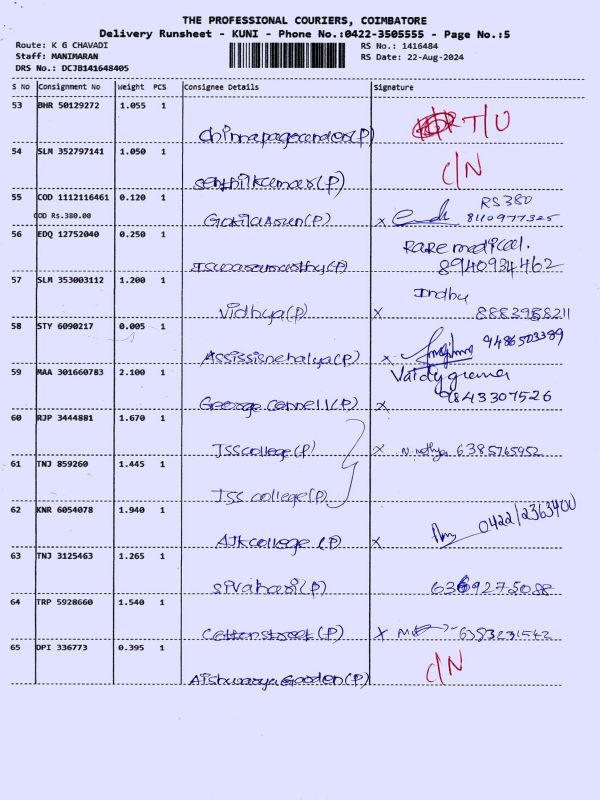 THE PROFESSIONAL COURIERS, COIMBATORE
Delivery Runsheet - KUNI - Phone No.:0422-3505555 - Page No.:5
Route: K G CHAVADI
Staff: MANIMARAN
DRS No.: DCJB141648405
RS No.: 1416484
RS Date: 22-Aug-2024
S No Consignment No Weight PCS Consignee Details Signature
53 BHR 50129272 1.055 1
T/U
54 SLM 352797141 1.050 1
senthilkumar(P) C/N
55 COD 1112116461 0.120 1 RS 380
COD Rs.380.00
8110977325
56 EDQ 12752040 0.250 1 Rare medical.
8940934462
57 SLM 353003112 1.200 1 Indhu
Vidhya(P) x 8883958211
58 STY 6090217 0.005 1 9486503389
x
59 MAA 301660783 2.100 1
9843307526
George (P) x
60 RJP 3444881 1.670 1
JSS college(P) x 6385765952
61 TNJ 859260 1.445 1
JSS college(P)
62 KNR 6054078 1.940 1 0422/2363400
AJK college (P) x
63 TNJ 3125463 1.265 1
sivahari(P) 6369275088
64 TRP 5928660 1.540 1
street(P) x 6383231542
65 DPI 336773 0.395 1 C/N
Aishwarya Garden(P)